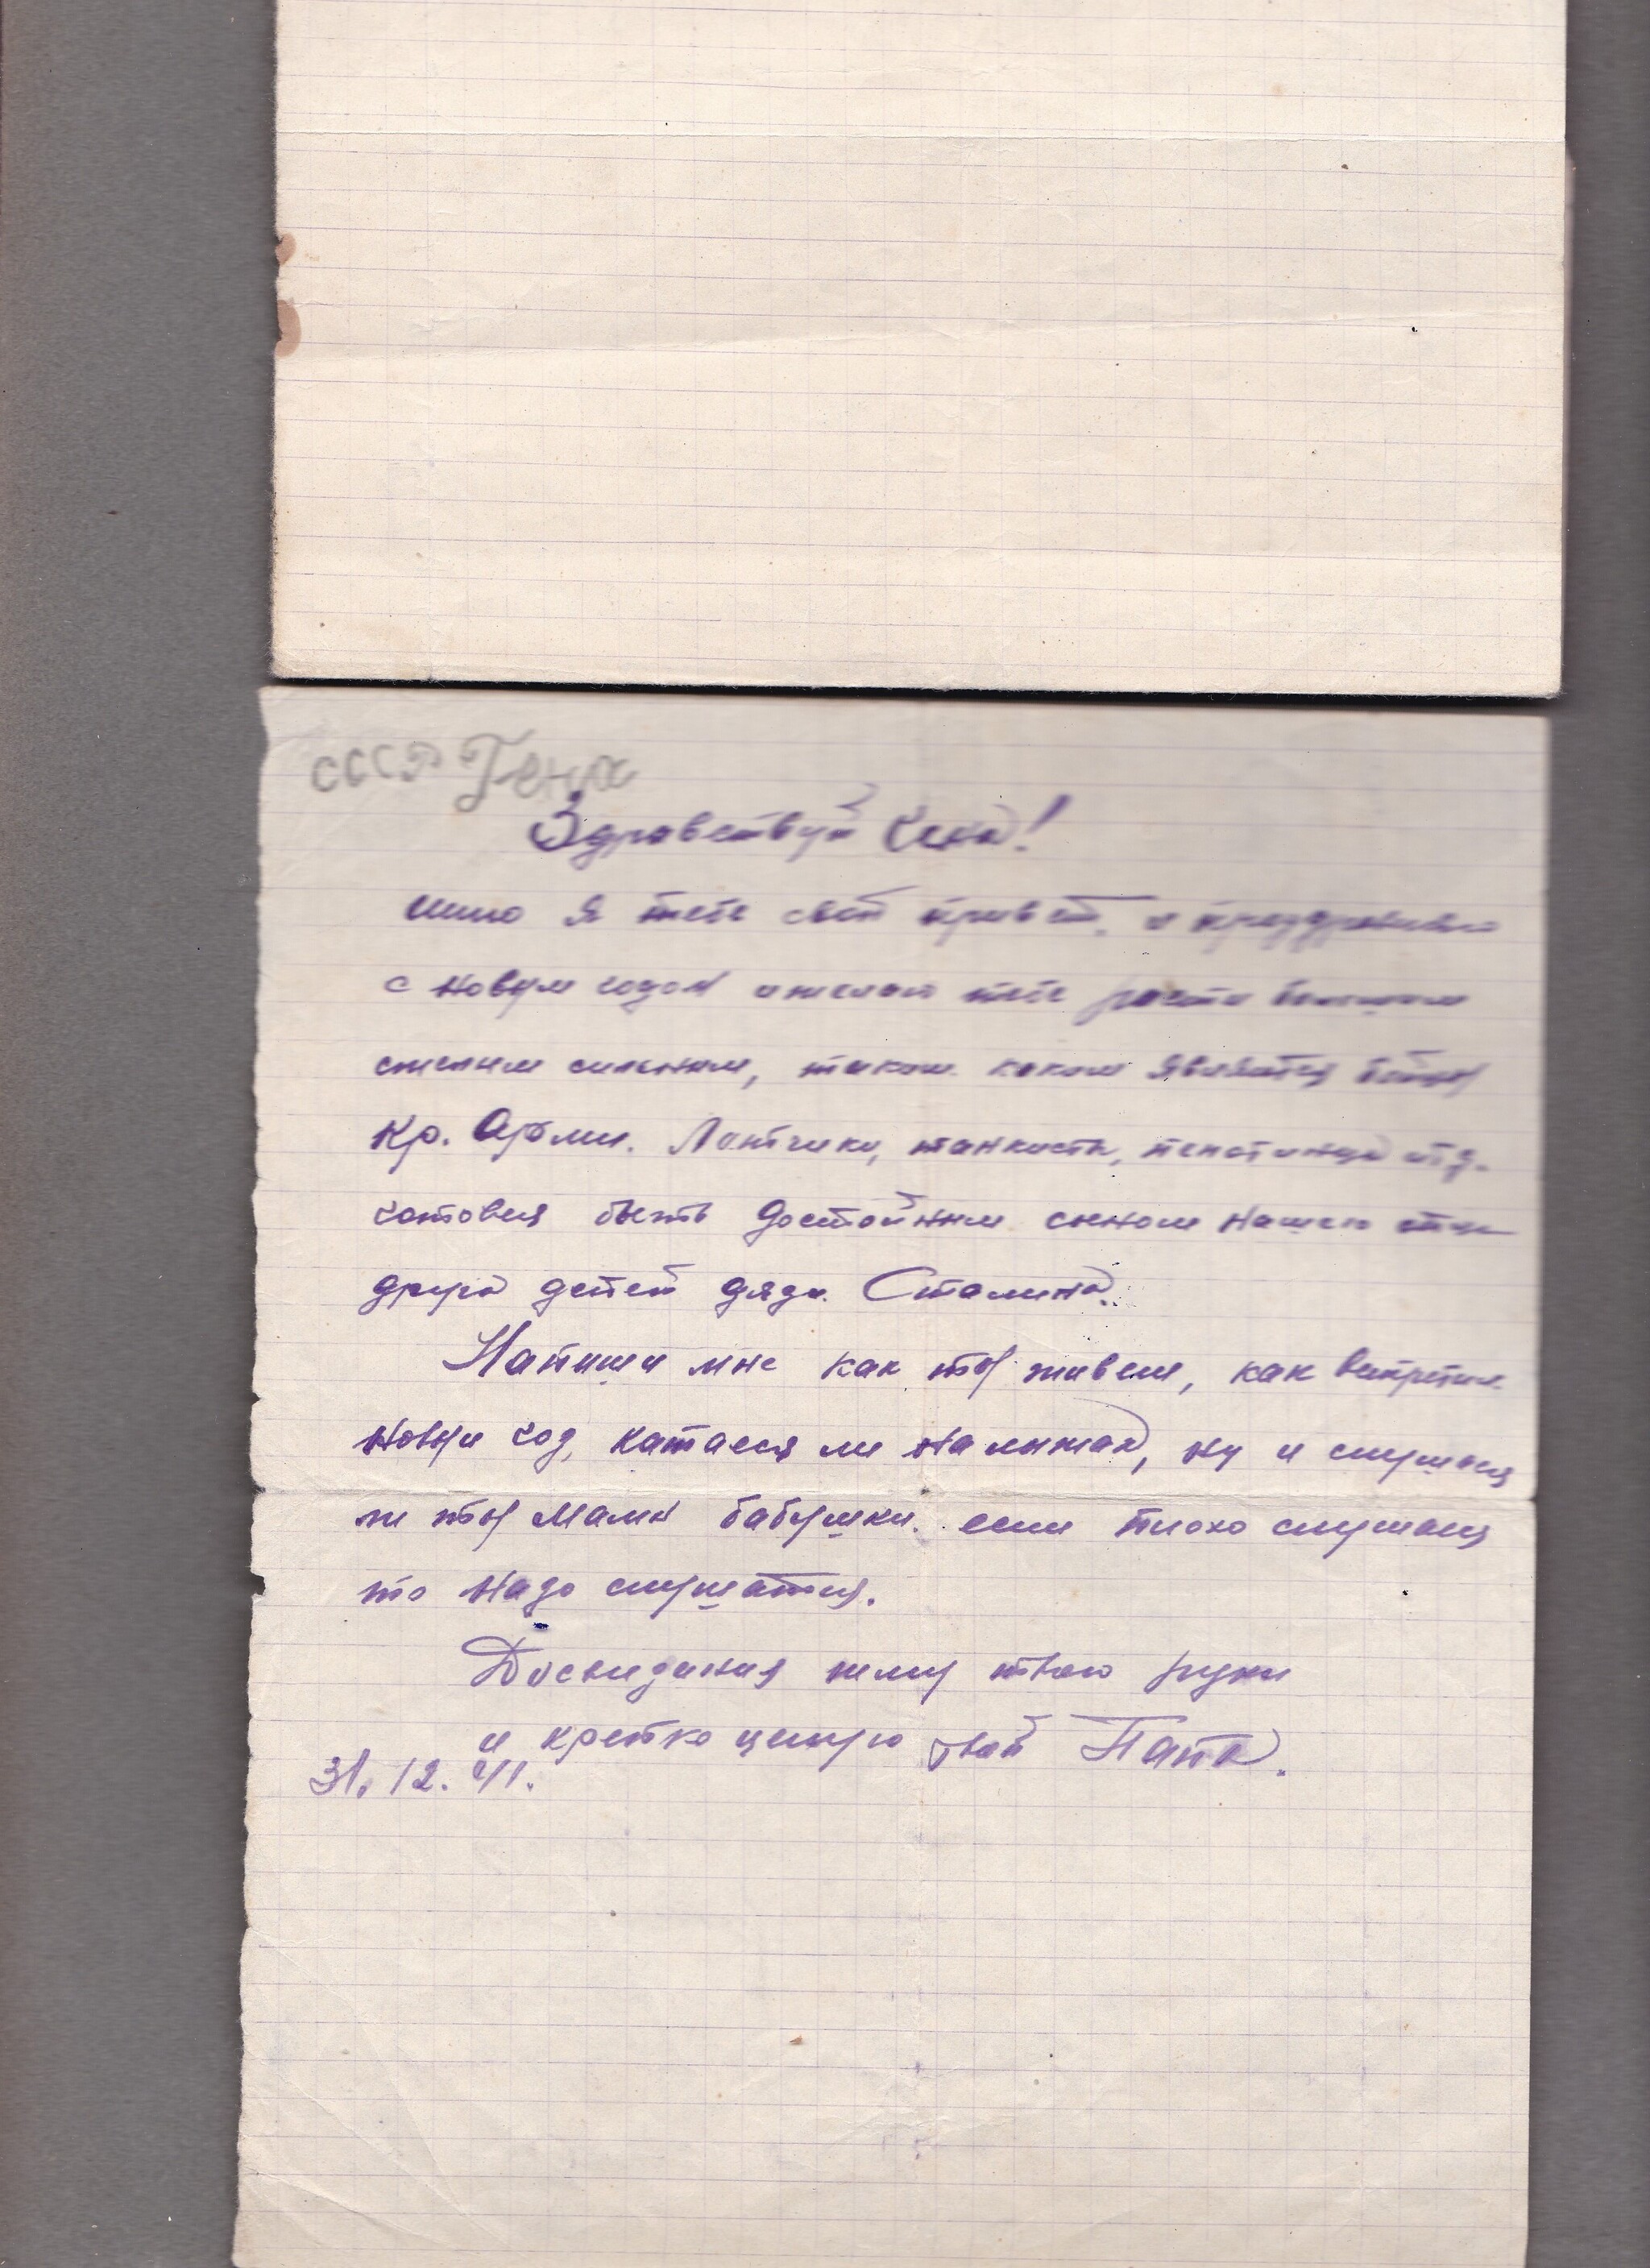 СССР Гена
Здравствуй Гена!
шлю я тебе свой привет. и проздравляю
с новым годом и желаю тебе расти большим
смелым сильным, таким каким является боец
Кр. Арми. Лотчики, танкисты,
готовся быть достойным сыном нашего отца
друга детей дяди Сталина.
Напиши мне как ты живеш, как встретил
Новый год, катаеся ли на лыжах, ну и слушаеся
ли ты мамы бабушки. если плохо слушаеся
то надо слушатся.
Досвидания жму твою руку
и крепко целую твой Папа.
31. 12. 41.